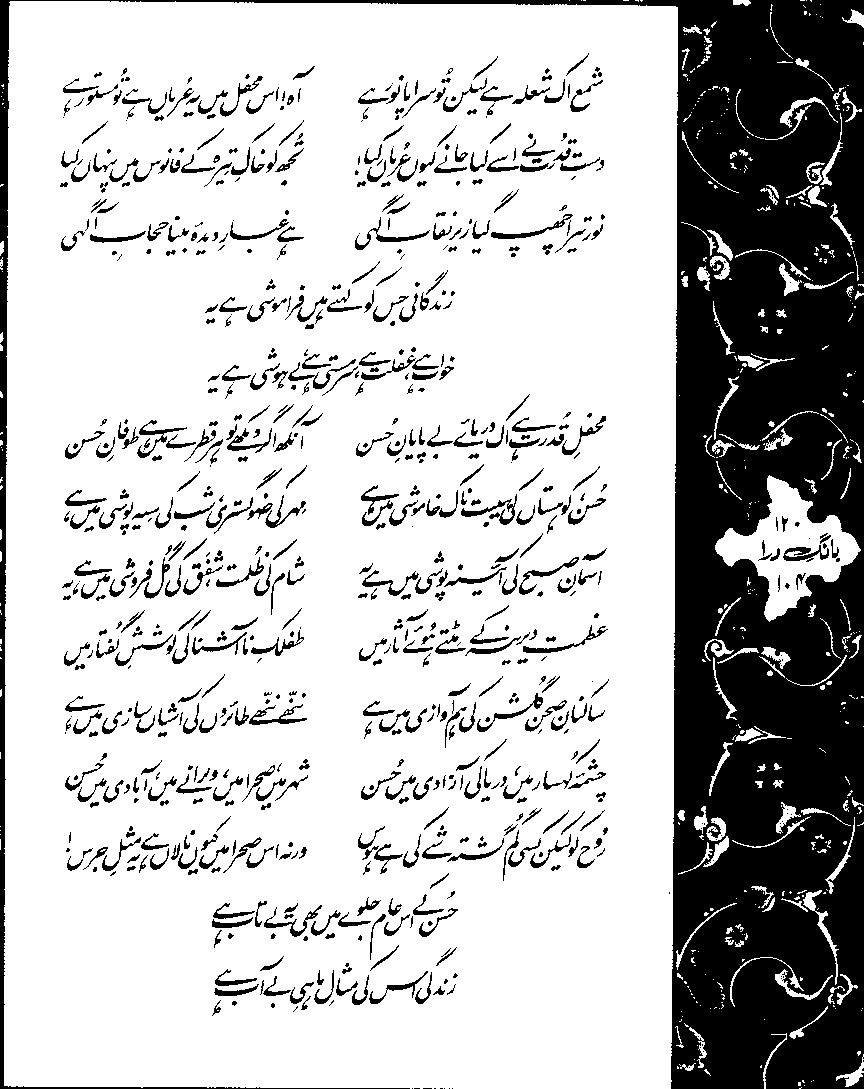 شمع اک شعلہ ہے لیکن تُو سراپا نور ہے آہ! اس محفل میں یہ عُریاں ہے تُو مستور ہے
دستِ قُدرت نے اسے کیا جانے کیوں عُریاں کیا! تُجھ کو خاکِ تیرہ کے فانوس میں پنہاں کیا
نور تیرا چھُپ گیا زیرِ نقابِ آگہی ہے غبارِ دیدۂ بینا حجابِ آگہی
زندگانی جس کو کہتے ہیں فراموشی ہے یہ
خواب ہے، غفلت ہے، سرمستی ہے، بے ہوشی ہے یہ
محفلِ قُدرت ہے اک دریائے بے پایانِ حُسن آنکھ اگر دیکھے تو ہر قطرے میں ہے طوفانِ حُسن
حُسن کوہستاں کی ہیبت ناک خاموشی میں ہے مہر کی ضوگستری، شب کی سیہ پوشی میں ہے
آسمانِ صبح کی آئینہ پوشی میں ہے یہ شام کی ظُلمت، شفَق کی گُل فروشی میں ہے یہ
عظمتِ دیرینہ کے مٹتے ہُوئے آثار میں طفلکِ ناآشنا کی کوششِ گُفتار میں
ساکنانِ صحنِ گُلشن کی ہم آوازی میں ہے ننھّے ننھّے طائروں کی آشیاں سازی میں ہے
چشمۂ کُہسار میں، دریا کی آزادی میں حُسن شہر میں، صحرا میں، ویرانے میں، آبادی میں حُسن
رُوح کو لیکن کسی گُم گشتہ شے کی ہے ہوس ورنہ اس صحرا میں کیوں نالاں ہے یہ مثلِ جرس!
حُسن کے اس عام جلوے میں بھی یہ بے تاب ہے
زندگی اس کی مثالِ ماہیِ بے آب ہے
۱۲۰
بانگِ درا
۱۰۴